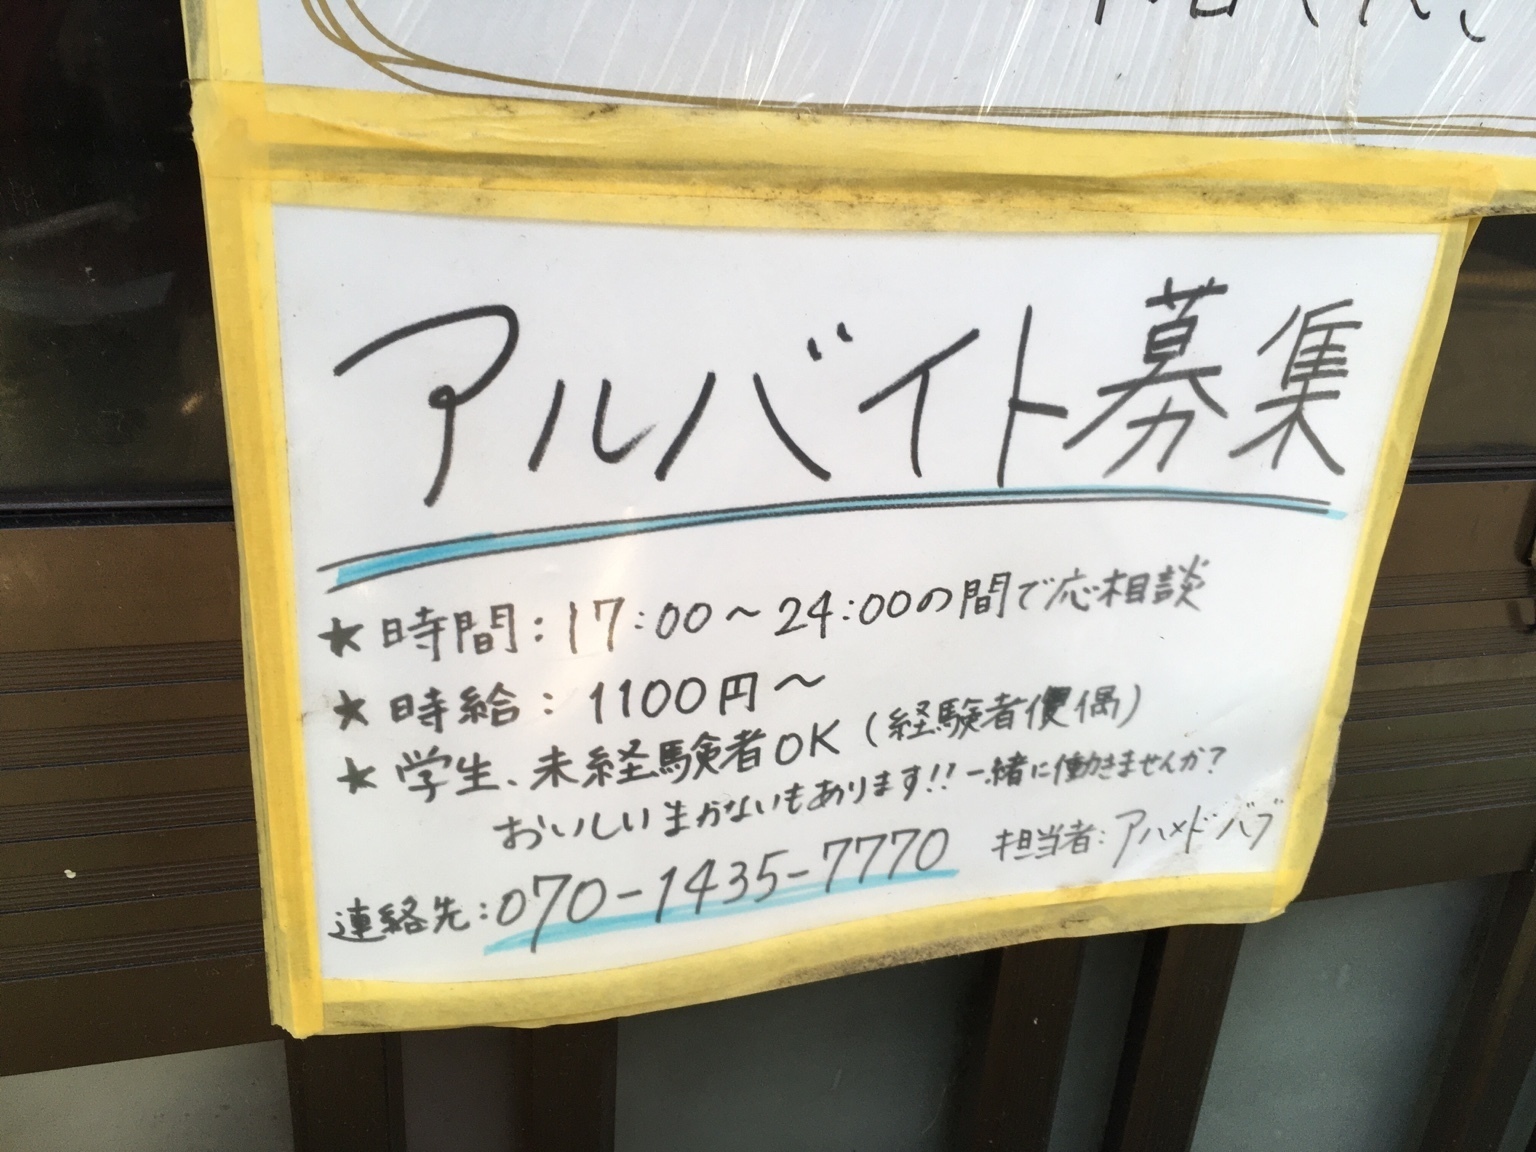 アルバイト募集
★時間：17:00～24:00の間で応相談
★時給：1100円～
★学生、未経験者OK（経験者優偶）
おいしいまかないもあります!!一緒に働きませんか？
連絡先：070-1435-7770
担当者：アハメド バブ